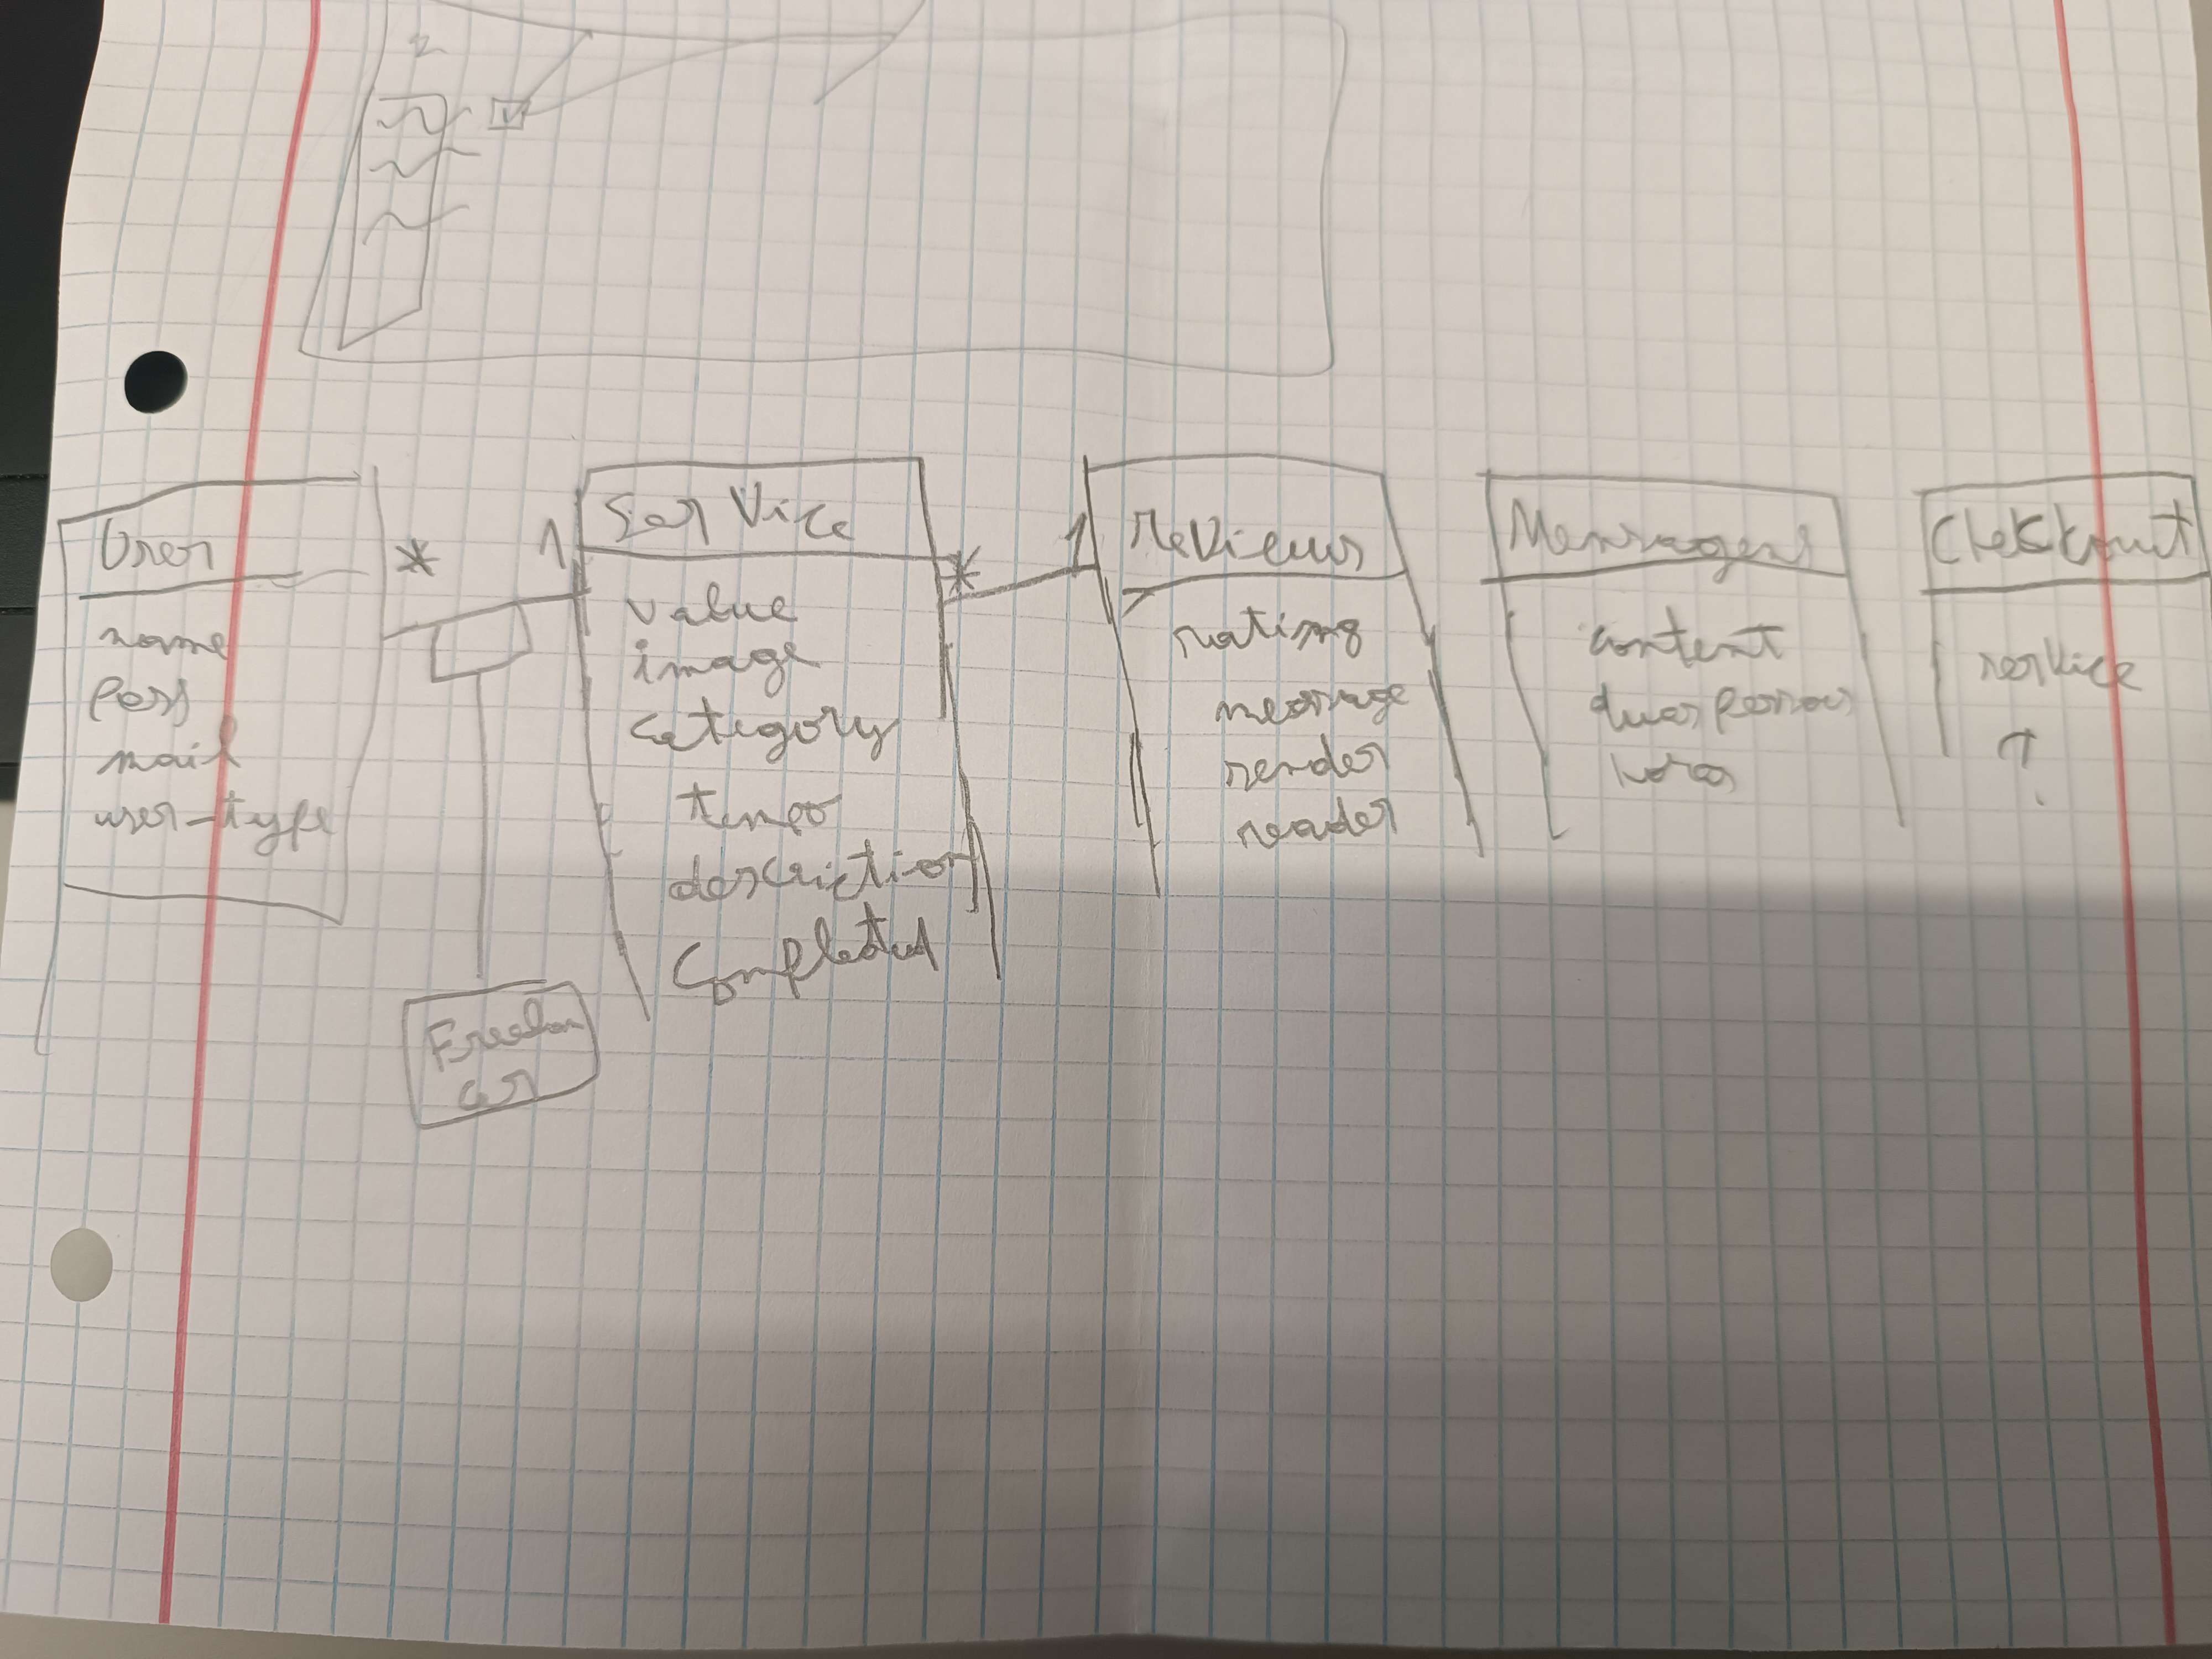 2
User
name
pass
mail
user-type
*
1
Service
value
image
category
tempo
description
Completed
*
1
Reviews
rating
message
sender
reader
Mensagens
content
duas pessoas
horas
Checkout
service
?
Freelan
cer